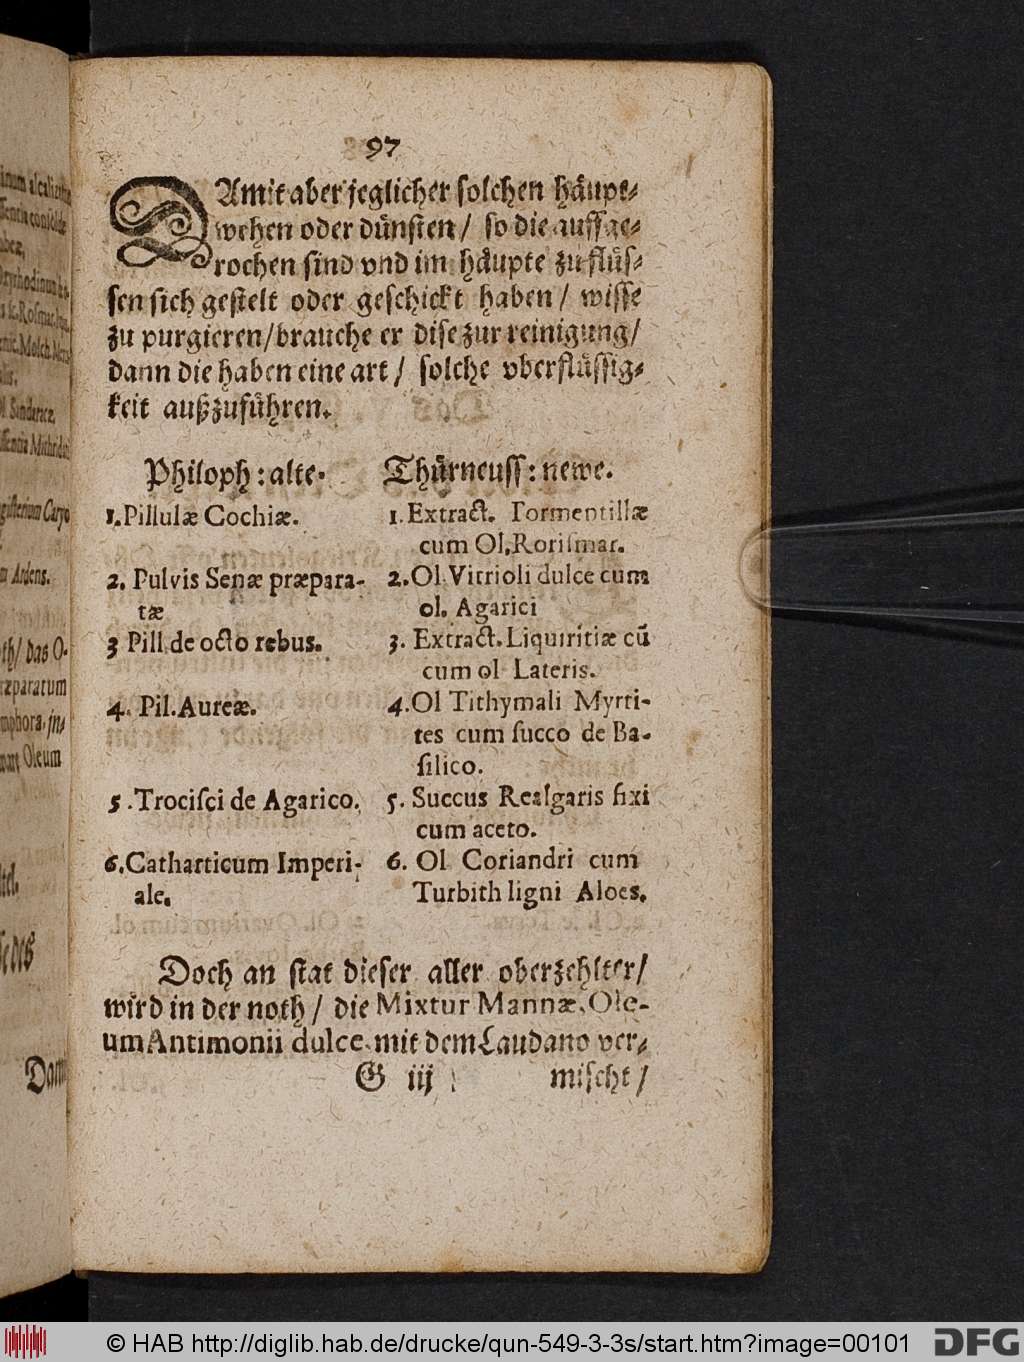 97
DAmit aber jeglicher solchen häupt-
wehen oder dünsten / so die auffge-
rochen sind vnd im häupte zu flüs-
sen sich gestelt oder geschickt haben / wisse
zu purgieren/brauche er dise zur reinigung/
dann die haben eine art / solche vberflüssig-
keit außzuführen.
Philoph: alte.
1. Pillulæ Cochiæ.
2. Pulvis Senæ præpara-
tæ
3 Pill. de octo rebus.
4. Pil. Aureæ.
5. Trocisci de Agarico.
6. Catharticum Imperi-
ale.
Thürneuss: newe.
1. Extract. Tormentillæ
cum Ol. Rorismar.
2. Ol. Vitrioli dulce cum
ol. Agarici
3. Extract. Liquiritiæ cũ
cum ol Lateris.
4. Ol Tithymali Myrti-
tes cum succo de Ba-
silico.
5. Succus Realgaris fixi
cum aceto.
6. Ol Coriandri cum
Turbith ligni Aloes.
Doch an stat dieser aller oberzehlter/
wird in der noth / die Mixtur Mannæ, Ole-
um Antimonii dulce mit dem Laudano ver-
G iij
mischt /
das O-
præparatum
Oleum
© HAB http://diglib.hab.de/drucke/qun-549-3-3s/start.htm?image=00101
DFG